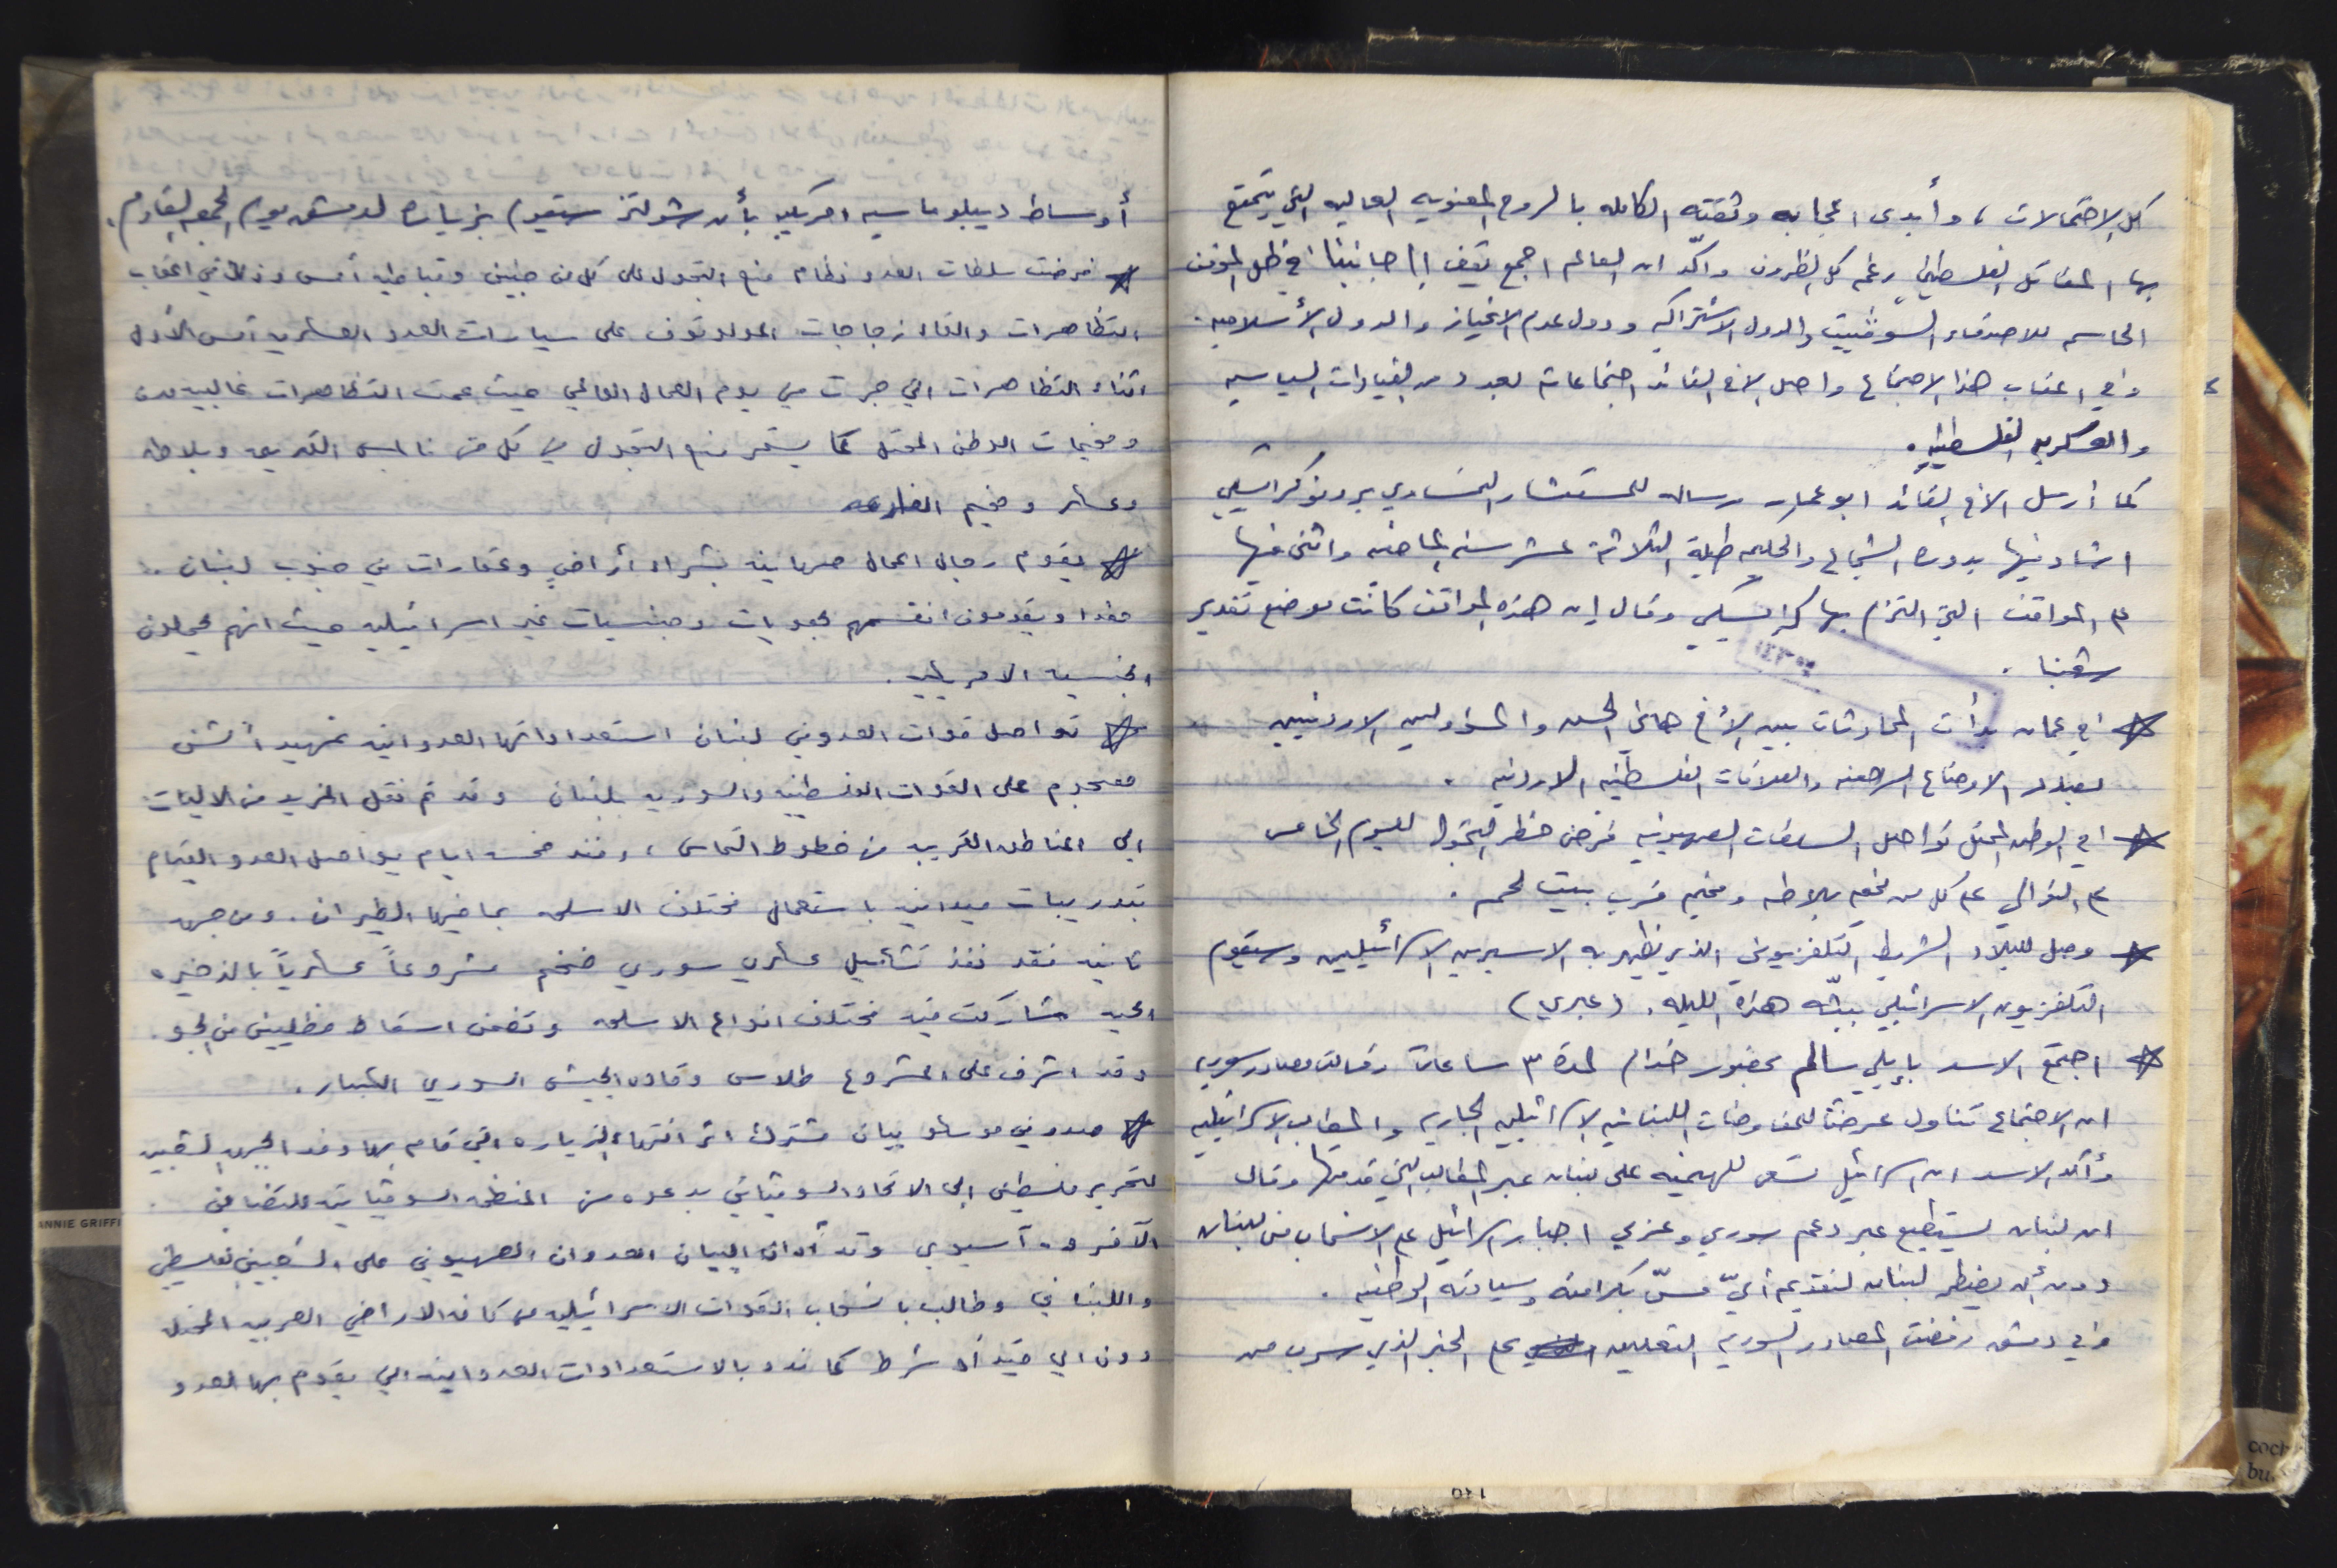 كل الاحتمالات ، وأبدى اعجابه وثقته الكامله بالروح المعنويه العاليه التي يتمتع
بها المقاتل الفلسطيني رغم كل الظروف واكّد ان العالم اجمع يقف الى جانبنا في ظل الموقف
الحاسم للاصدقاء السوفييت والدول الاشتراكيه ودول عدم الانحياز والدول الأسلاميه .
وفي اعقاب هذا الاجتماع واصل الاخ القائد اجتماعاته بعدد من القيادات السياسيه
والعسكريه الفلسطينيه .
كما أرسل الاخ القائد ابو عمار رساله للمستشار النمساوي برونو كرايسكي
اشاد فيها بدوره الشجاع والحكيم طيلة الثلاثة عشر سنه الماضيه واثنى فيها
على المواقف التي التزم بها كرايسكي وقال إن هذه المواقف كانت موضع تقدير
شعبنا .
في عمان بدأت المحادثات بين الأخ هاني الحسن والمسؤولين الاردنيين
الاوضاع الراهنه والعلاقات الفلسطينيه الاردنيه .
في الوطن المحتل تواصل السلطات الصهيونيه فرض حظر التجول لليوم الخامس
على التوالي على كل من مخيم بلاطه ومخيم قرب بيت لحم .
وصل للبلاد الشريط التلفزيوني الذي يظهر به الاسيرين الاسرائيليين وسيقوم
التلفزيون الاسرائيلي ببثّه هذه الليله . (عبري)
اجتمع الاسد بإيلي سالم بحضور خدام لمدة ٣ ساعات وقالت مصادر سوريه
ان الاجتماع تناول عرضاً للمفاوضات اللبنانيه الاسرائيليه الجاريه والمطالب الاسرائيليه
وأكد الاسد ان اسرائيل تسعى للهيمنه على لبنان عبر المطالب التي قدمتها وقال
ان لبنان يستطيع عبر دعم سوري وعربي اجبار اسرائيل على الانسحاب من لبنان
دون أن يضطر لبنان لتقديم أيّ مسّ بكرامته وسيادته الوطنيه .
وفي دمشق رفضت المصادر السوريه التعليق على الخبر الذي سرب من
أوساط ديبلوماسيه امريكيه بأن شولتز سيقوم بزيارة لدمشق يوم الجمعه القادم .
فرضت سلطات العدو نظام منع التجول على كل من جنين وقباطيه أمس وذلك في اعقاب
التظاهرات والقاء زجاجات المولوتوف على سيارات العدو العسكريه أمس الأول
اثناء التظاهرات التي جرت في يوم العمال العالمي حيث عمت التظاهرات غالبية مدن
ومخيمات الوطن المحتل كما يستمر منع التجول في كل من نابلس القديمه وبلاطه
وعسكر ومخيم الفارعه
يقوم رجال اعمال صهاينه بشراء أراضي وعقارات في جنوب لبنان ..
ويقدمون انفسهم بهويات وجنسيات غير اسرائيليه حيث انهم يحملون
الجنسيه الامريكيه .
تواصل قوات العدو في لبنان استعداداتها العدوانيه تمهيداً لشن
هجوم على القوات الفلسطينيه والسوريه بلبنان وقد تم نقل المزيد من الاليات
الى المناطق القريبه من خطوط التماس ، ومنذ خمسة ايام يواصل العدو القيام
بتدريبات ميدانيه باستعمال مختلف الاسلحه بما فيها الطيران . ومن جهه
ثانيه فقد نفذ تشكيل عسكري سوري ضخم مشروعاً عسكرياً بالذخيره
الحيه شاركت فيه مختلف انواع الاسلحه وتضمن اسقاط مظليين من الجو .
وقد اشرف على المشروع طلاس وقادة الجيش السوري الكبار .
صدر في موسكو بيان مشترك اثر انتهاء الزياره التي قام بها وفد الجبهه الشعبيه
لتحرير فلسطين الى الاتحاد السوفياتي بدعوه من المنظمه السوفياتيه للتضامن
الآفرو - آسيوي وقد أدان البيان العدوان الصهيوني على الشعبين الفلسطيني
واللبناني وطالب بانسحاب القوات الاسرائيليه من كافة الاراضي العربيه المحتله
دون اي قيد أو شرط كما ندد بالاستعدادات العدوانيه التي يقوم بها العدو
ANNIE GRIFFI